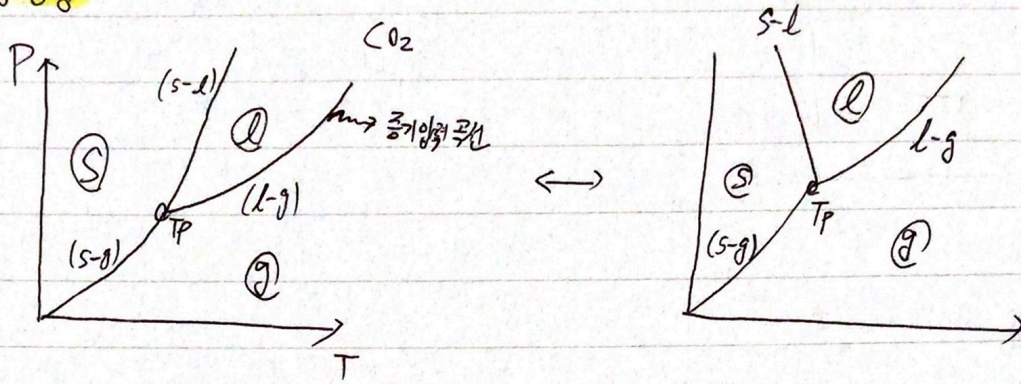 CO₂
P
(s-l)
ⓢ
ⓛ
증기압력 곡선
(l-g)
Tp
(s-g)
ⓖ
T
s-l
ⓛ
l-g
ⓢ
Tp
(s-g)
ⓖ